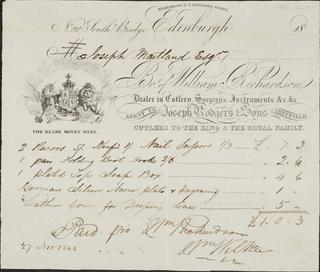 New South Bridge Edinburgh 18
Joseph Maitland Esqr
Bot of William Richardson
Dealer in Cutlery, Surgeon's Instruments &c. &c.
AGENT TO Joseph Rodgers & Sons SHEFFIELD
CUTLERS TO THE KING & THE ROYAL FAMILY.
FOR READY MONEY ONLY.
2 Razors Nail Scissors 1/3 £ " 7 . 3
1 pair Folding Boot Hooks 2/6 2 . 6
1 plated Top Soap Box 4 6
German Silver Name plate & Engraving 1 "
Leather Cover for Dressing Case 5 "
£ 1 . 0 . 3
Paid pro Wm Richardson
Wm Wilkie
27 Nov